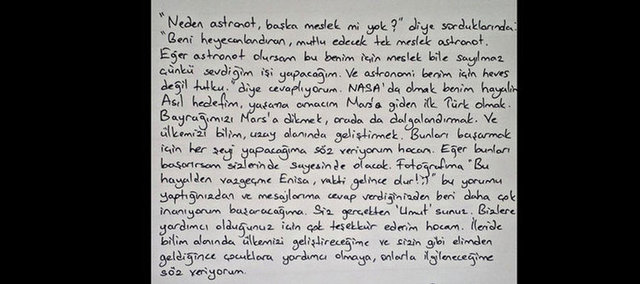 "Neden astronot, başka meslek mi yok?" diye sorduklarında:
"Beni heyecanlandıran, mutlu edecek tek meslek astronot.
Eğer astronot olursam bu benim için meslek bile sayılmaz
çünkü sevdiğim işi yapacağım. Ve astronomi benim için heves
değil tutku." diye cevaplıyorum. NASA'da olmak benim hayalim
Asıl hedefim, yaşama amacım Mars'a giden ilk Türk olmak.
Bayrağımızı Mars'a dikmek, orada da dalgalandırmak. Ve
ülkemizi bilim, uzay alanında geliştirmek. Bunları başarmak
için her şeyi yapacağıma söz veriyorum hocam. Eğer bunları
başarırsam sizlerinde sayesinde olacak. Fotoğrafıma "Bu
hayalden vazgeçme Enisa, vakti gelince olur! ;)" bu yorumu
yaptığınızdan ve mesajlarıma cevap verdiğinizden beri daha çok
inanıyorum başaracağıma. Siz gerçekten 'Umut' sunuz. Bizlere
yardımcı olduğunuz için çok teşekkür ederim hocam. İleride
bilim alanında ülkemizi geliştireceğime ve sizin gibi elimden
geldiğince çocuklara yardımcı olmaya, onlarla ilgileneceğime
söz veriyorum.